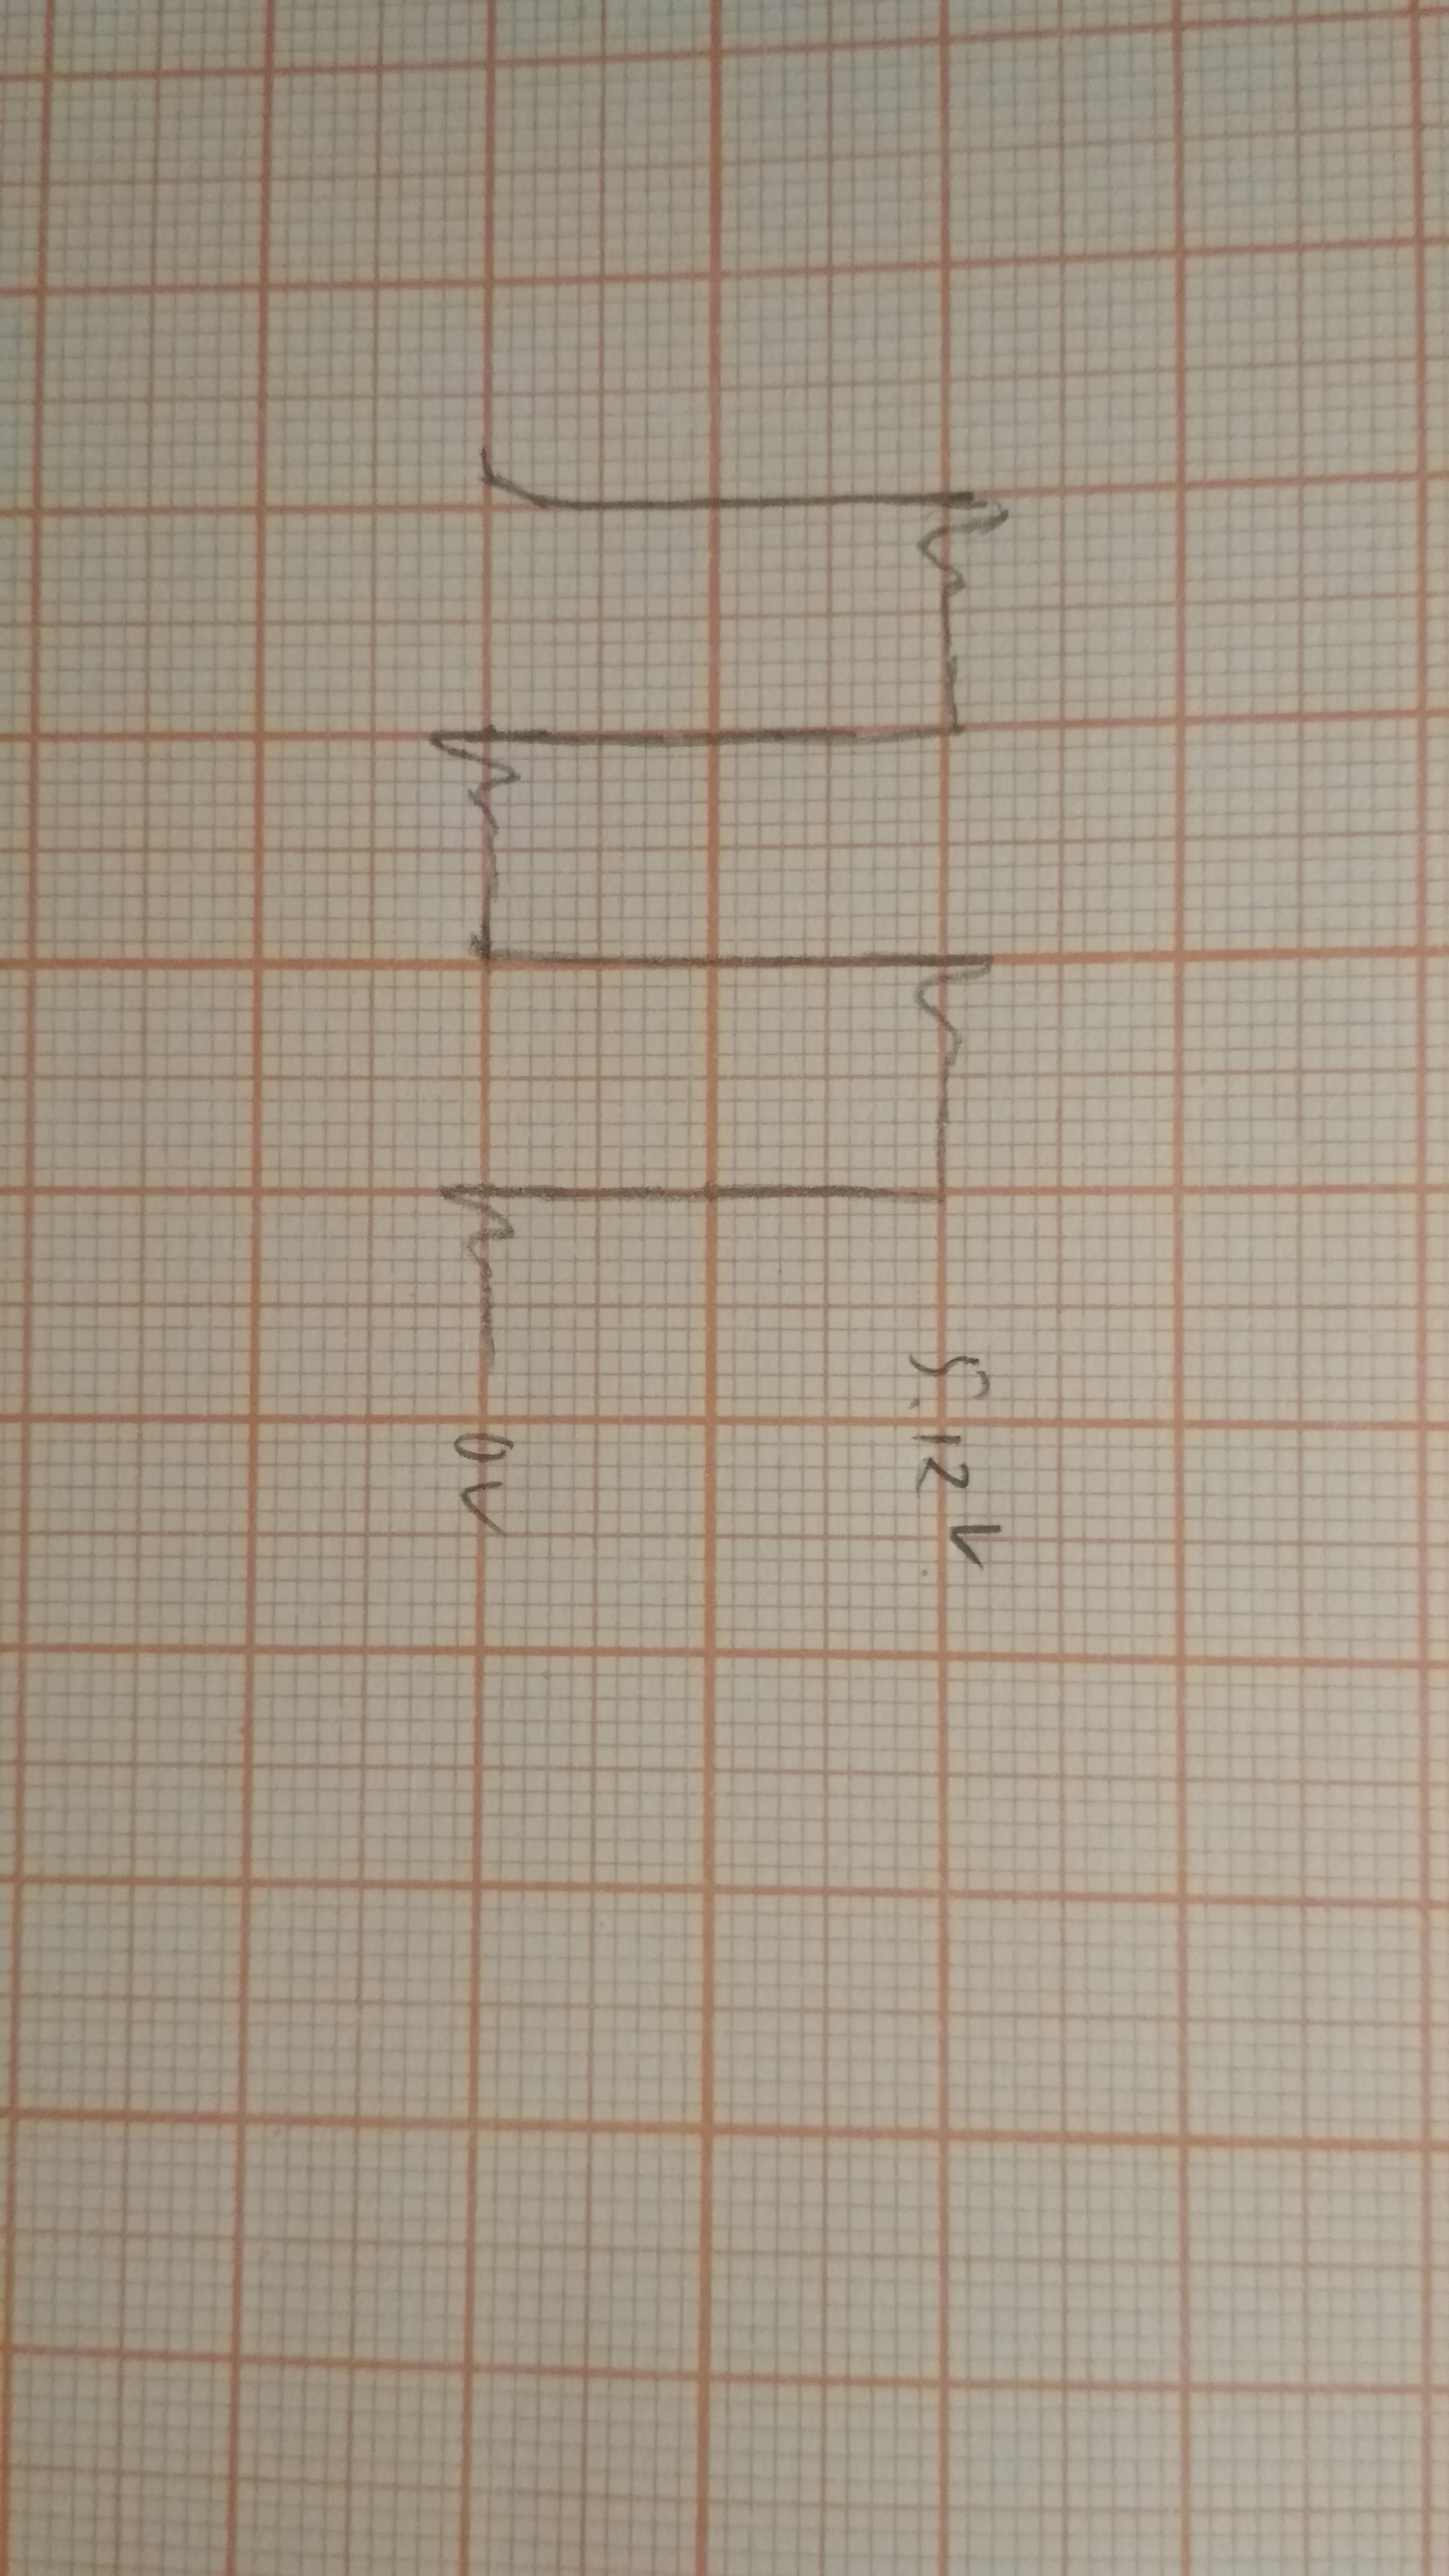 5.12V
0V